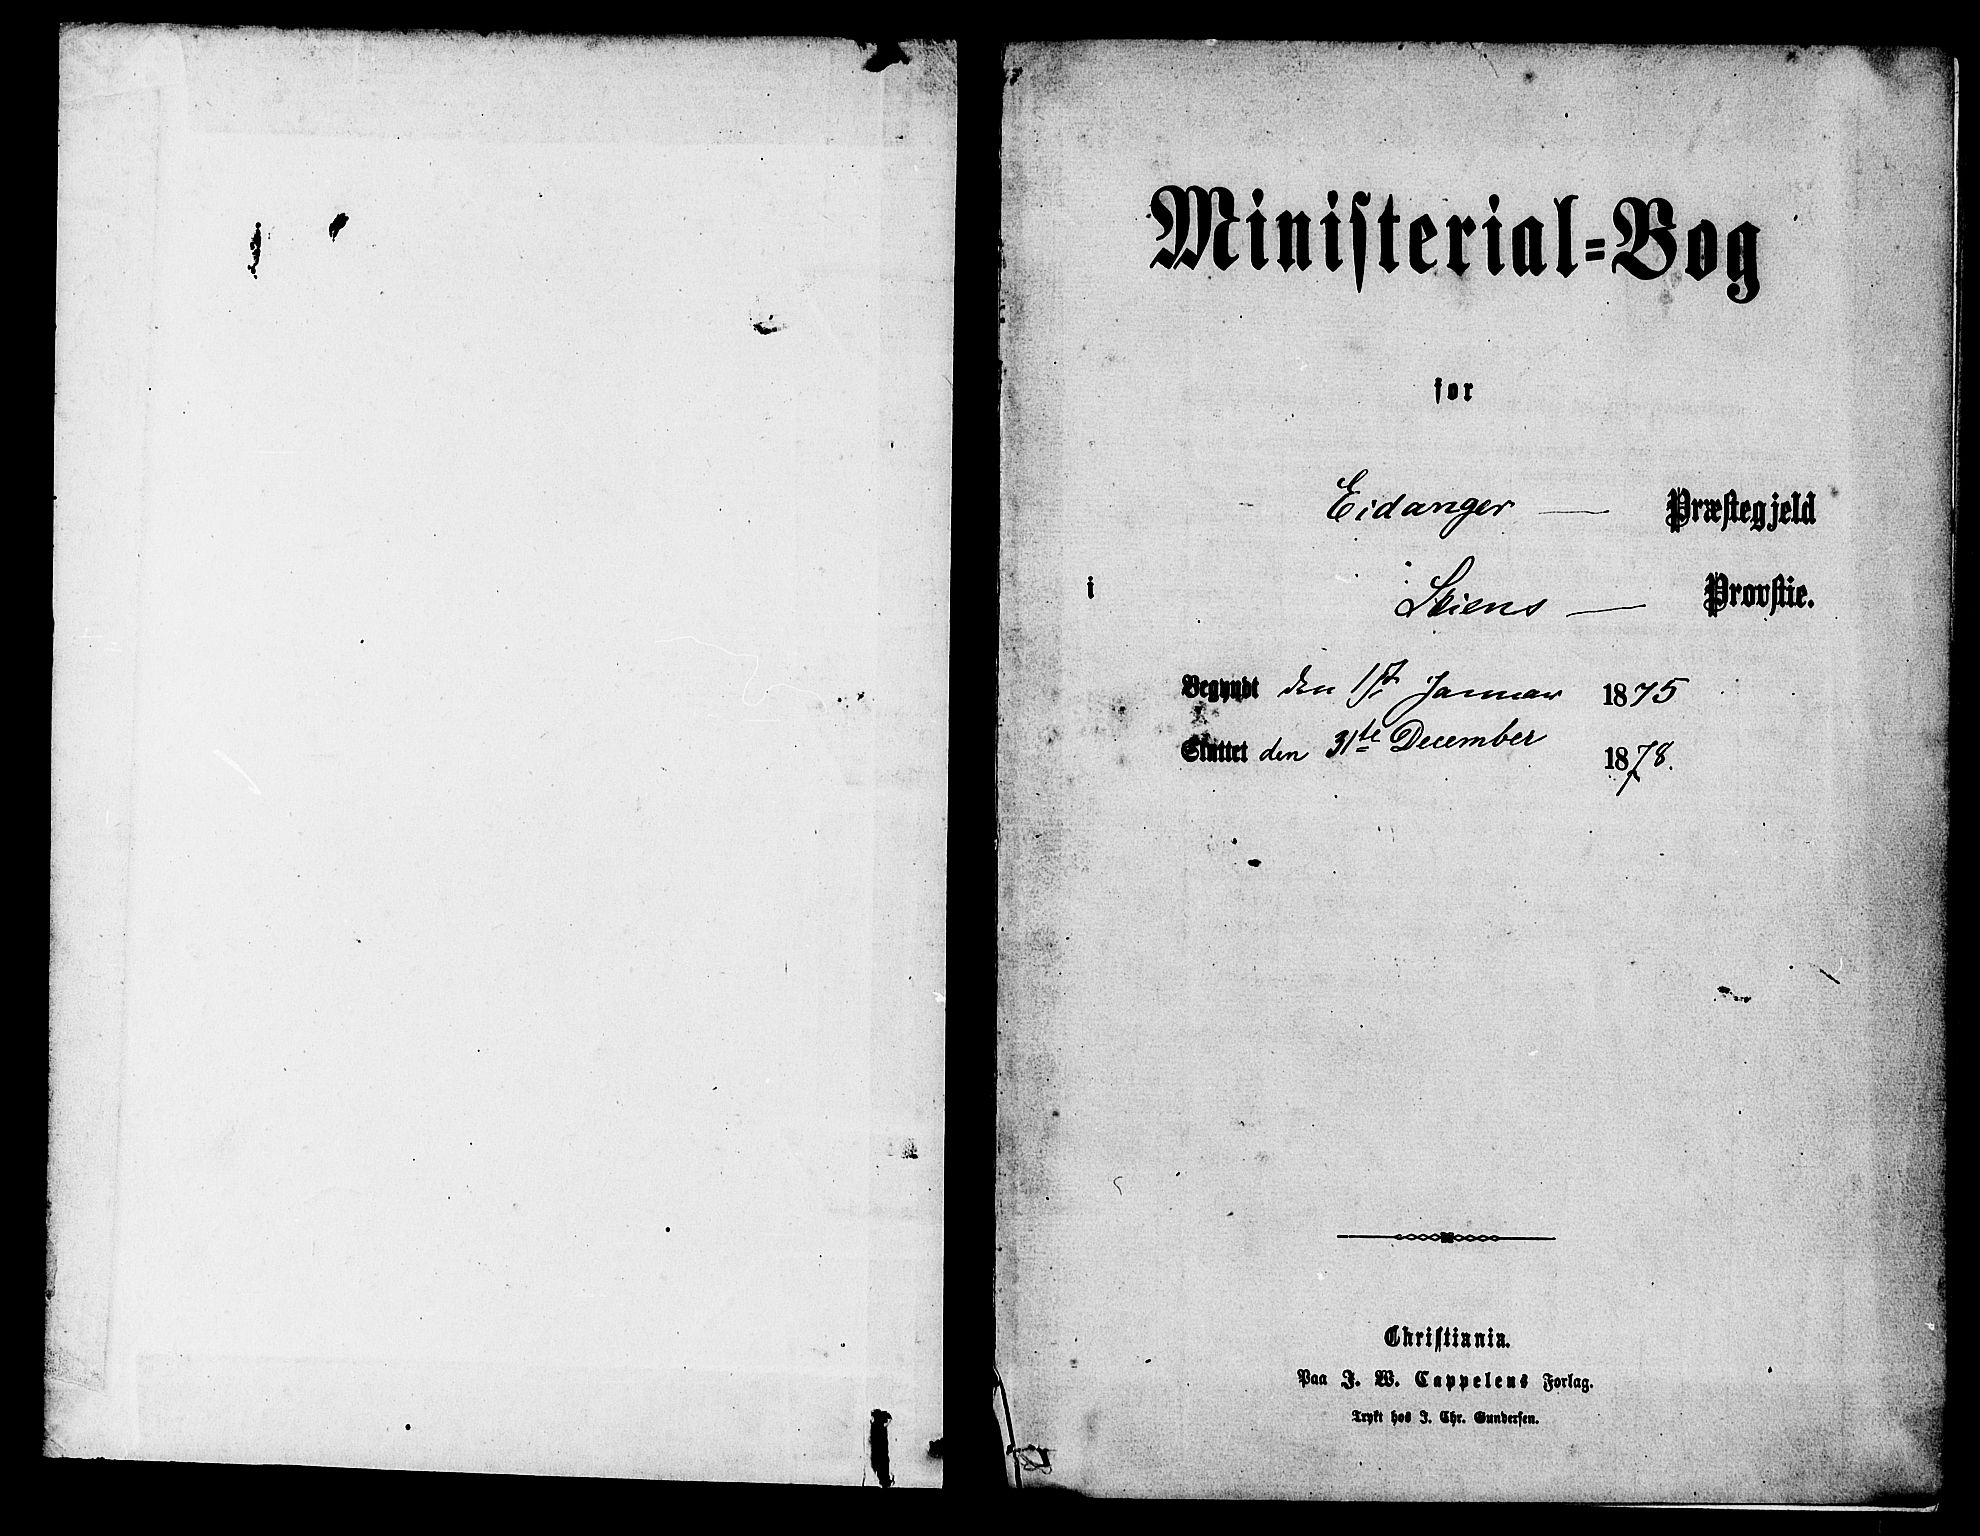 Ministerial-Bog
for
Eidanger — Præstegjeld
i Skiens — Provstie.
Begyndt den 1st Januar 1875
Sluttet den 31te December 1878.
Christiania.
Paa J. W. Cappelens Forlag.
Trykt hos J. Chr. Gundersen.